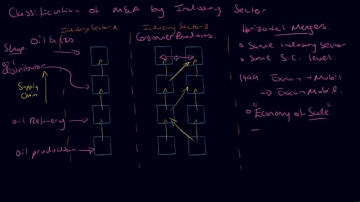 Classification of M&A by Industry Sector
Industry Sector A
Oil & Gas
Industry Sector B
Consumer Products
Stage
Oil distributor
Supply Chain
Oil Refinery
Oil production
Horizontal Mergers
o Same industry sector
o Same S.C. level
1999 Exxon + Mobil
→ Exxon Mobil.
o "Economy of Scale"